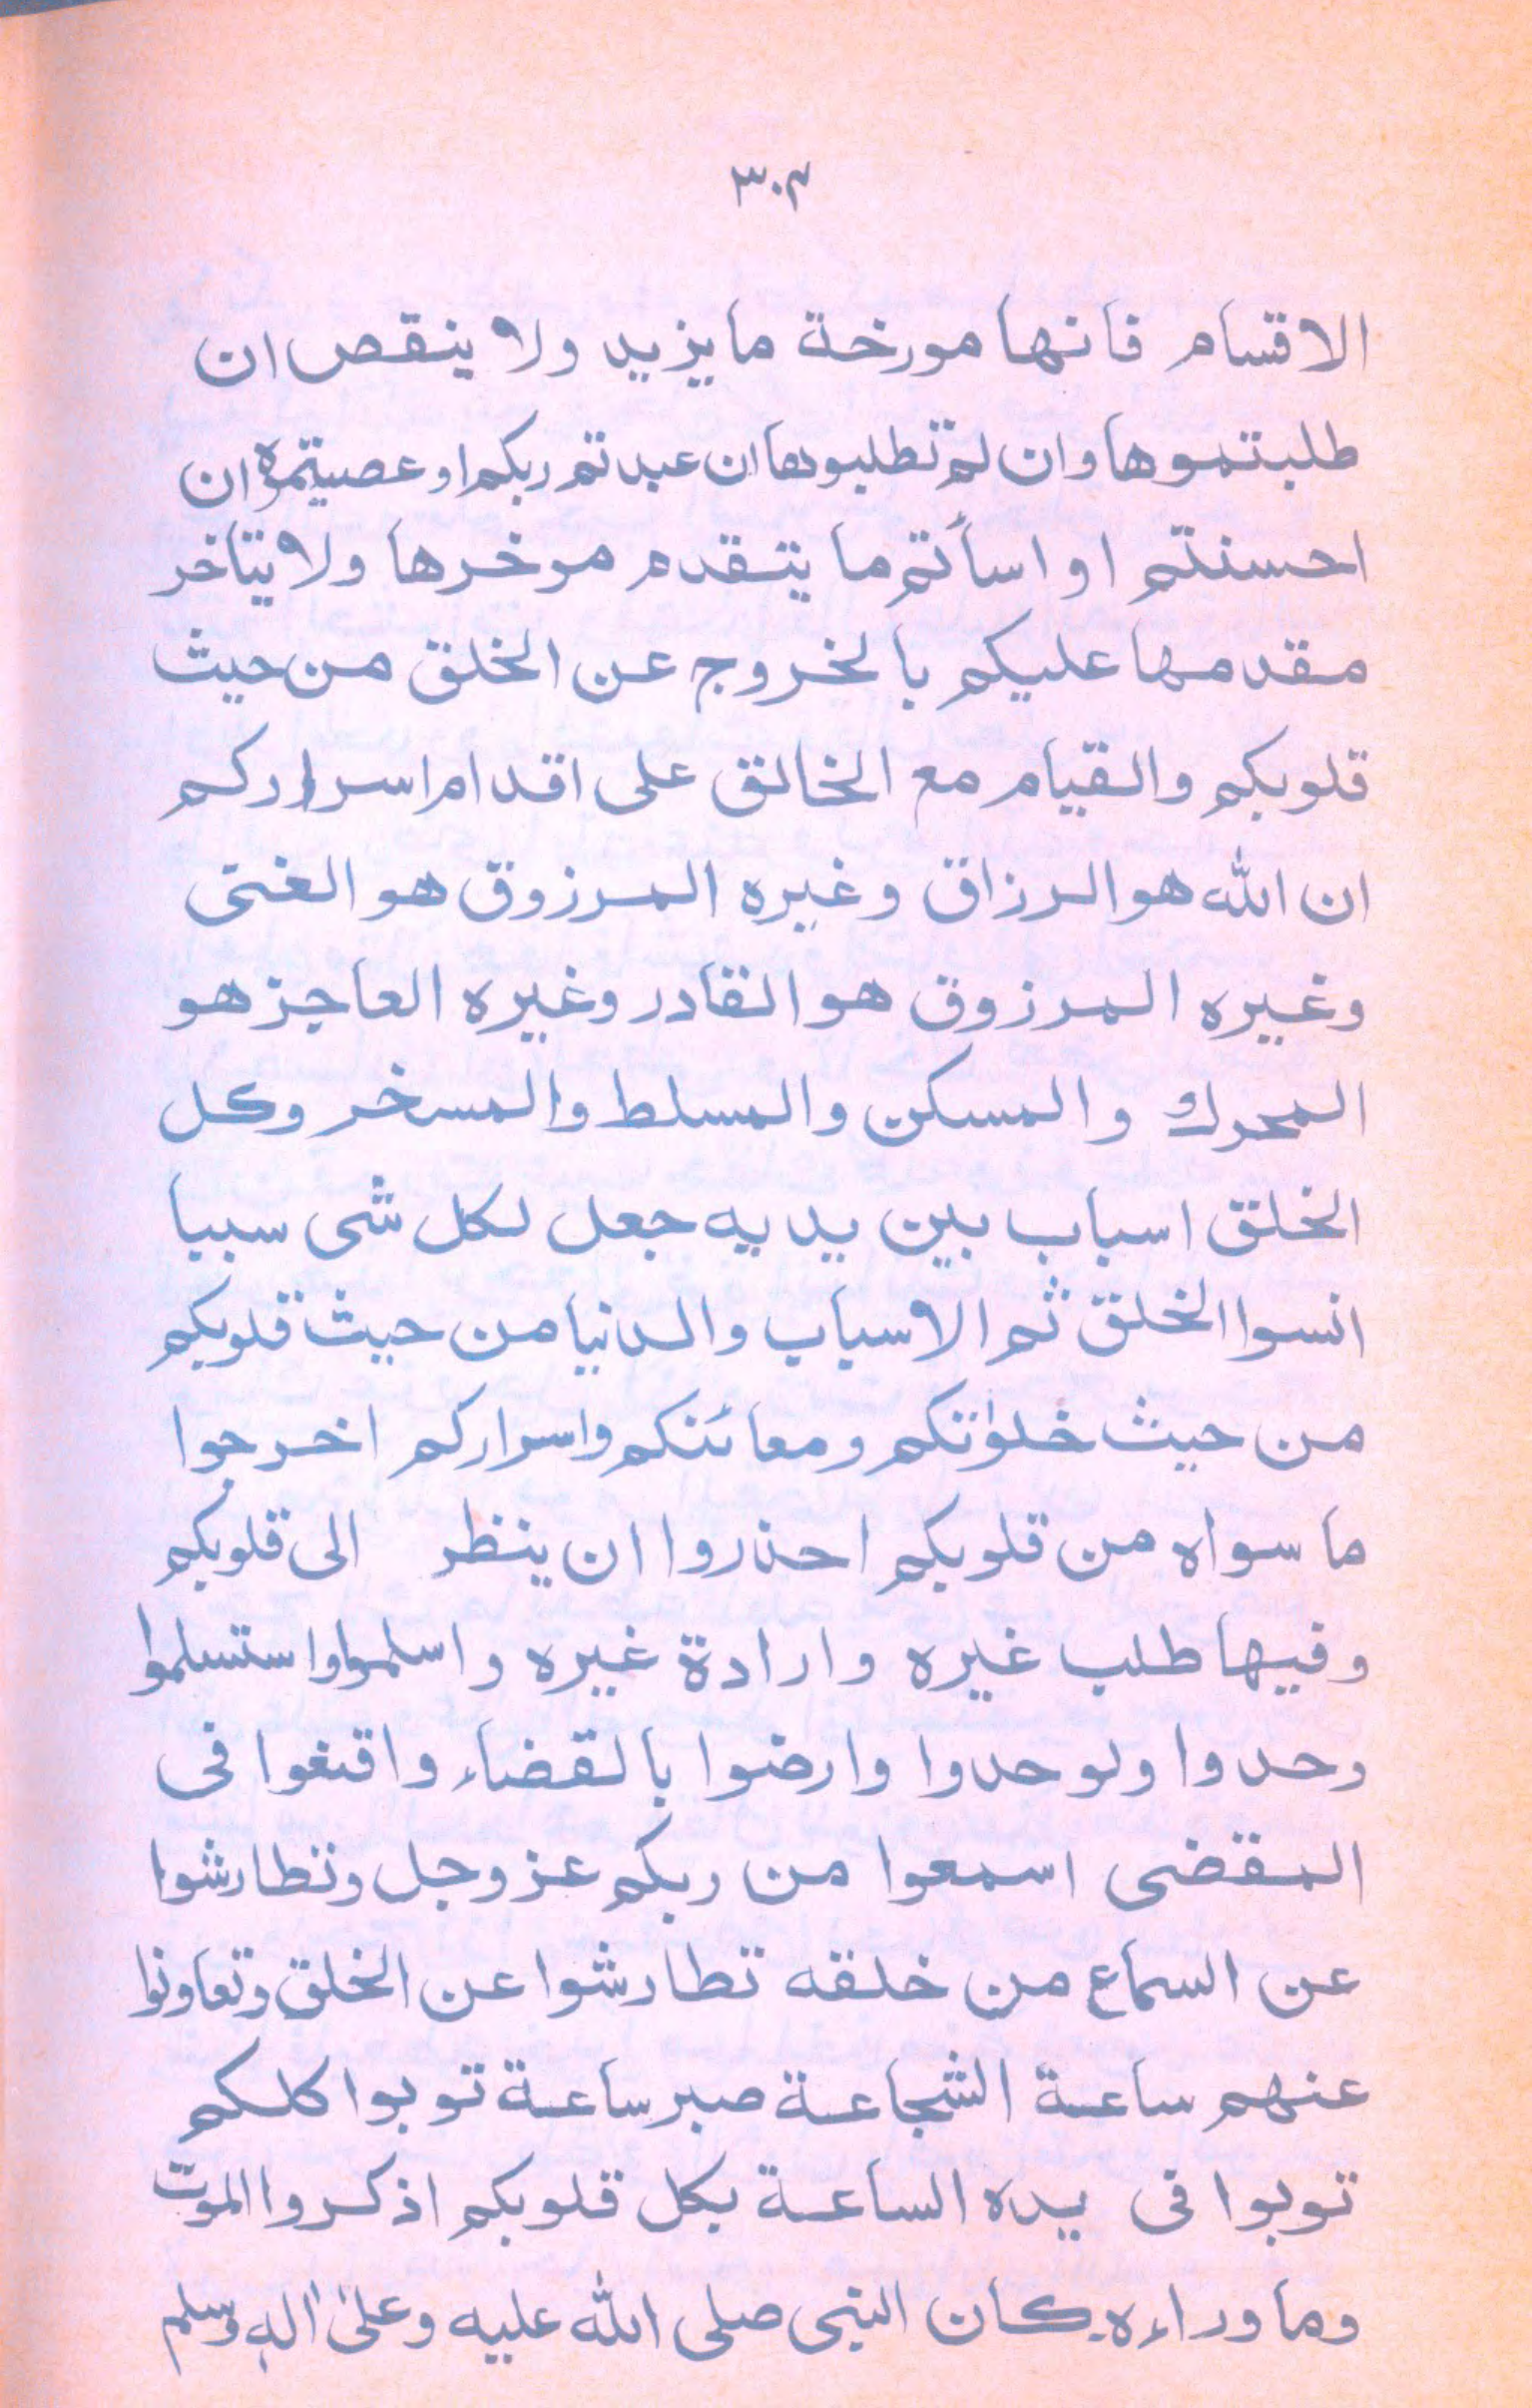 ٣٠٣
الاقسام فانها مورخة ما يزيد ولا ينقص ان
طلبتموها وان لم تطلبوها ان عبدتم ربكم او عصيتموه ان
احسنتم او اسأتم ما يتقدم موخرها ولا يتأخر
مقدمها عليكم بالخروج عن الخلق من حيث
قلوبكم والقيام مع الخالق على اقدام اسراركم
ان الله هو الرزاق وغيره المرزوق هو الغنى
وغيره المرزوق هو القادر وغيره العاجز هو
المحرك والمسكن والمسلط والمسخر وكل
الخلق اسباب بين يديه جعل لكل شى سببا
انسوا الخلق ثم الاسباب والدنيا من حيث قلوبكم
من حيث خلواتكم ومعائنكم واسراركم اخرجوا
ما سواه من قلوبكم احذروا ان ينظر الى قلوبكم
وفيها طلب غيره وارادة غيره واسلموا واستسلموا
وحدوا ولوحدوا وارضوا بالقضاء واقنعوا فى
المقضى اسمعوا من ربكم عز وجل وتطارشوا
عن السماع من خلقه تطارشوا عن الخلق وتعاونوا
عنهم ساعة الشجاعة صبر ساعة توبوا كلكم
توبوا فى يده الساعة بكل قلوبكم اذكروا الموت
وما وراءه كان النبى صلى الله عليه وعلى اله وسلم